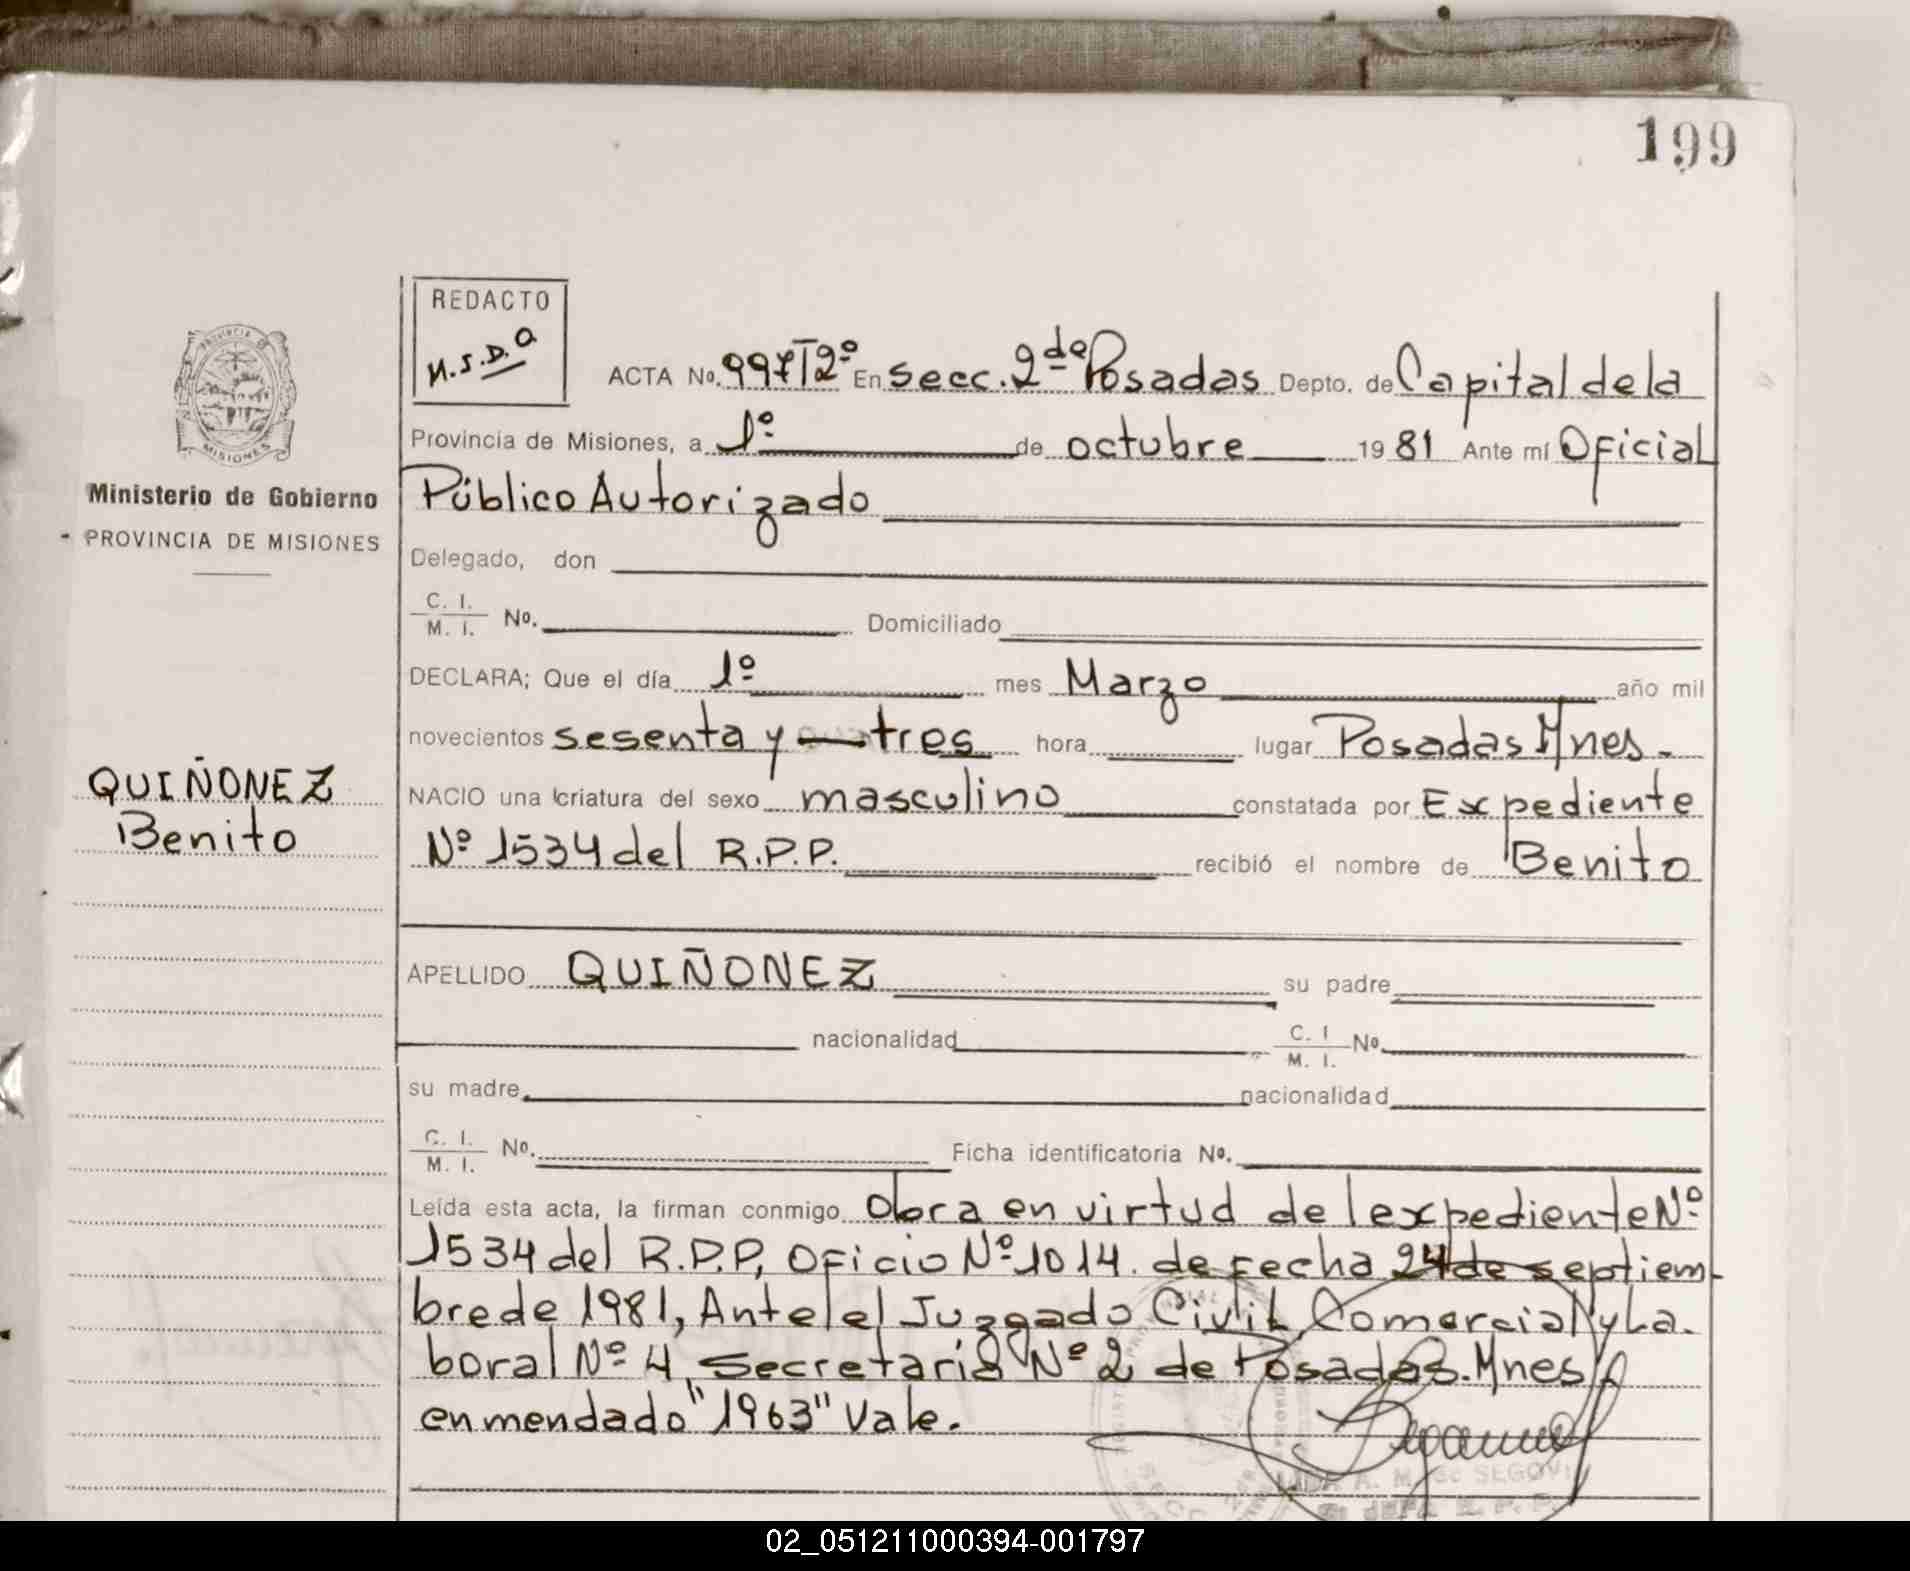 199
REDACTO
M.S.D.a
ACTA No. 997T2º En secc. 2da de Posadas Depto. de Capital de la
Provincia de Misiones, a 1º de octubre 1981 Ante mí Oficial
Público Autorizado
Delegado, don
C. I.
M. I. No. Domiciliado
DECLARA; Que el día 1º mes Marzo año mil
novecientos sesenta y tres hora lugar Posadas Mnes.
NACIO una criatura del sexo masculino constatada por Expediente
Nº 1534 del R.P.P. recibió el nombre de Benito
APELLIDO QUIÑONEZ su padre
nacionalidad C. I. M. I. No.
su madre nacionalidad
C. I.
M. I. No. Ficha identificatoria No.
Leída esta acta, la firman conmigo Obra en virtud del expediente Nº
1534 del R.P.P, Oficio Nº 1014. de fecha 24 de septiem
bre de 1981, Ante el Juzgado Civil, Comercial y La.
boral Nº 4, Secretaria Nº 2 de Posadas. Mnes
enmendado "1963" Vale.
A. M. de SEGOVI
PROVINCIA
MISIONES
Ministerio de Gobierno
PROVINCIA DE MISIONES
QUIÑONEZ
Benito
02_051211000394-001797